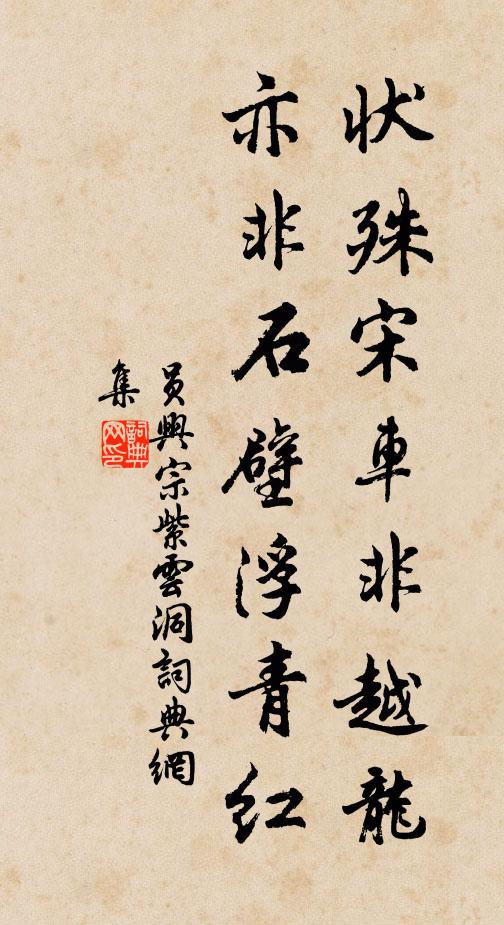 状殊宋車非越龍
亦非石壁浮青红
員興宗紫雲洞詞典網
集
詞典
网印